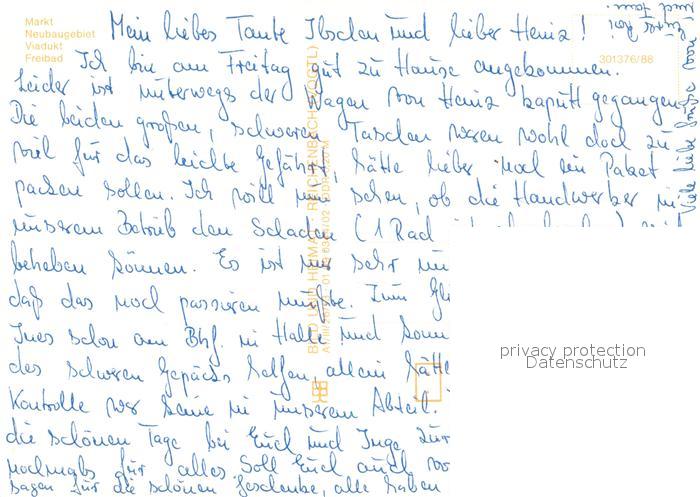 Markt
Neubaugebiet
Viadukt
Freibad
Mein liebes Tante Ilschen und lieber Heinz!
Ich bin am Freitag gut zu Hause angekommen.
Leider ist unterwegs der Wagen von Heinz kaputt gegangen.
Die beiden großen, schweren Taschen waren wohl doch zu
viel für das leichte Gefährt, hätte lieber noch ein Paket
packen sollen. Ich will nun sehen, ob die Handwerker in
unserem Betrieb den Schaden (1 Rad
beheben können. Es ist mir sehr un
daß das noch passieren mußte. Zum Gl
Ines schon am Bhf. in Halle und konn
des schweren Gepäcks helfen, allein hätte
Kontrolle war keine in unserem Abteil.
die schönen Tage bei Euch und Inge zur
nochmals für alles. Soll Euch auch vo
sagen für die schönen Geschenke, alle haben
Viele liebe Grüße von
Eurer
und Fam.
301376/88
BILD UND HEIMAT REICHENBACH (VOGTL)
privacy protection
Datenschutz